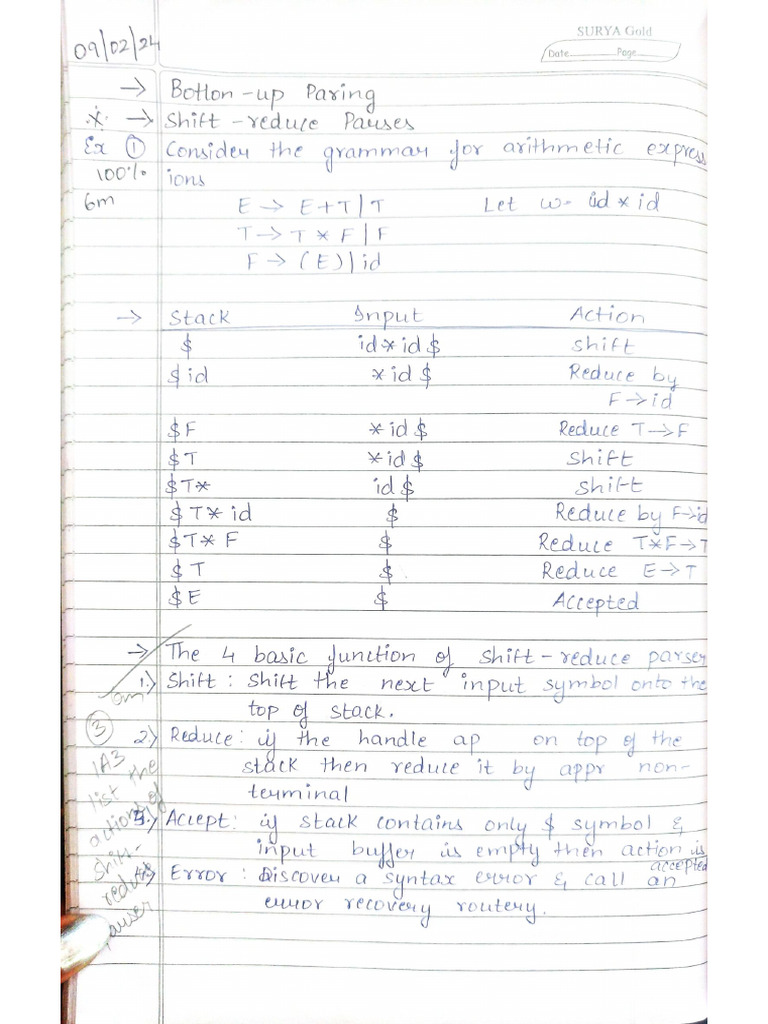 SURYA Gold
09/02/24
Date Page
→ Botton-up Paring
* → Shift-reduce Parses
Ex ① Consider the grammar for arithmetic express
100% ions
6m E → E+T|T Let w= id * id
T → T * F|F
F → (E)|id
→ Stack Input Action
$ id*id$ shift
$id *id$ Reduce by
F→id
$F *id$ Reduce T→F
$T *id$ Shift
$T* id$ shift
$T*id $ Reduce by F→id
$T*F $ Reduce T*F→T
$T $. Reduce E→T
$E $ Accepted
→ The 4 basic function of shift-reduce parser
1.) Shift : shift the next input symbol onto the
top of stack.
2.) Reduce: if the handle ap on top of the
stack then reduce it by appr non-
terminal
3.) Accept: if stack contains only $ symbol &
input buffer is empty then action is
accepted
Error : Discover a syntax error & call an
error recovery routery.
③
1A3
list the
actions of
shift-
reduce
parser